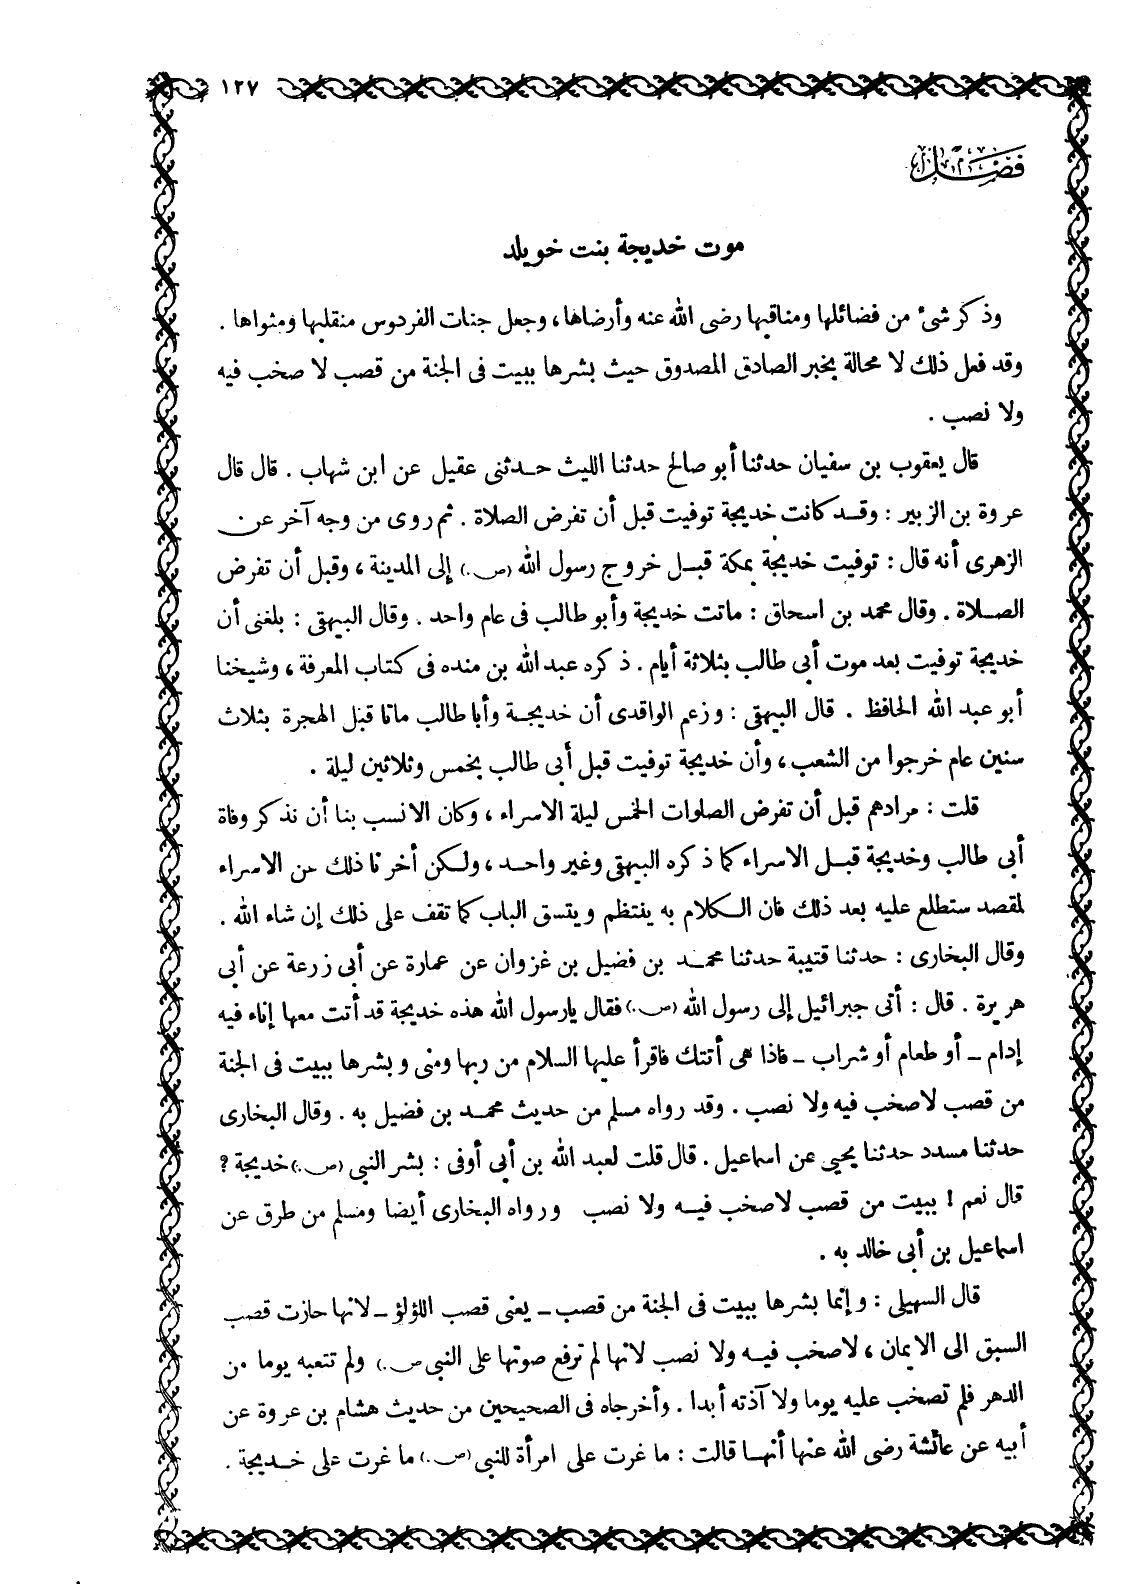 ١٢٧
فصل
موت خديجة بنت خويلد
وذكر شىء من فضائلها ومناقبها رضى الله عنه وأرضاها، وجعل جنات الفردوس منقلبها ومثواها .
وقد فعل ذلك لا محالة بخبر الصادق المصدوق حيث بشرها ببيت فى الجنة من قصب لا صخب فيه
ولا نصب .
قال يعقوب بن سفيان حدثنا أبو صالح حدثنا الليث حدثنى عقيل عن ابن شهاب . قال قال
عروة بن الزبير : وقد كانت خديجة توفيت قبل أن تفرض الصلاة . ثم روى من وجه آخر عن
الزهرى أنه قال : توفيت خديجة بمكة قبل خروج رسول الله (ص.) إلى المدينة ، وقبل أن تفرض
الصلاة . وقال محمد بن اسحاق : ماتت خديجة وأبو طالب فى عام واحد . وقال البيهقى : بلغنى أن
خديجة توفيت بعد موت أبى طالب بثلاثة أيام . ذكره عبد الله بن منده فى كتاب المعرفة ، وشيخنا
أبو عبد الله الحافظ . قال البيهقى : وزعم الواقدى أن خديجة وأبا طالب ماتا قبل الهجرة بثلاث
سنين عام خرجوا من الشعب ، وأن خديجة توفيت قبل أبى طالب بخمس وثلاثين ليلة .
قلت : مرادهم قبل أن تفرض الصلوات الخمس ليلة الاسراء ، وكان الانسب بنا أن نذكر وفاة
أبى طالب وخديجة قبل الاسراء كما ذكره البيهقى وغير واحد ، ولكن أخرنا ذلك عن الاسراء
لمقصد ستطلع عليه بعد ذلك فان الكلام به ينتظم ويتسق الباب كما تقف على ذلك إن شاء الله .
وقال البخارى : حدثنا قتيبة حدثنا محمد بن فضيل بن غزوان عن عمارة عن أبى زرعة عن أبى
هريرة . قال : أتى جبرائيل إلى رسول الله (ص.) فقال يارسول الله هذه خديجة قد أتت معها إناء فيه
إدام ـ أو طعام أو شراب ـ فاذا هى أتتك فاقرأ عليها السلام من ربها ومنى وبشرها ببيت فى الجنة
من قصب لاصخب فيه ولا نصب . وقد رواه مسلم من حديث محمد بن فضيل به . وقال البخارى
حدثنا مسدد حدثنا يحيى عن اسماعيل . قال قلت لعبد الله بن أبي أوفى : بشر النبي (ص.) خديجة ؟
قال نعم ! ببيت من قصب لاصخب فيه ولا نصب ورواه البخارى أيضا ومسلم من طرق عن
اسماعيل بن أبى خالد به .
قال السهيلى : وإنما بشرها ببيت فى الجنة من قصب ـ يعنى قصب اللؤلؤ ـ لانها حازت قصب
السبق الى الايمان ، لاصخب فيه ولا نصب لانها لم ترفع صوتها على النبى (ص.) ولم تتعبه يوما من
الدهر فلم تصخب عليه يوما ولا آذته أبدا . وأخرجاه فى الصحيحين من حديث هشام بن عروة عن
أبيه عن عائشة رضى الله عنها أنها قالت : ما غرت على امرأة للنبى (ص.) ما غرت على خديجة .